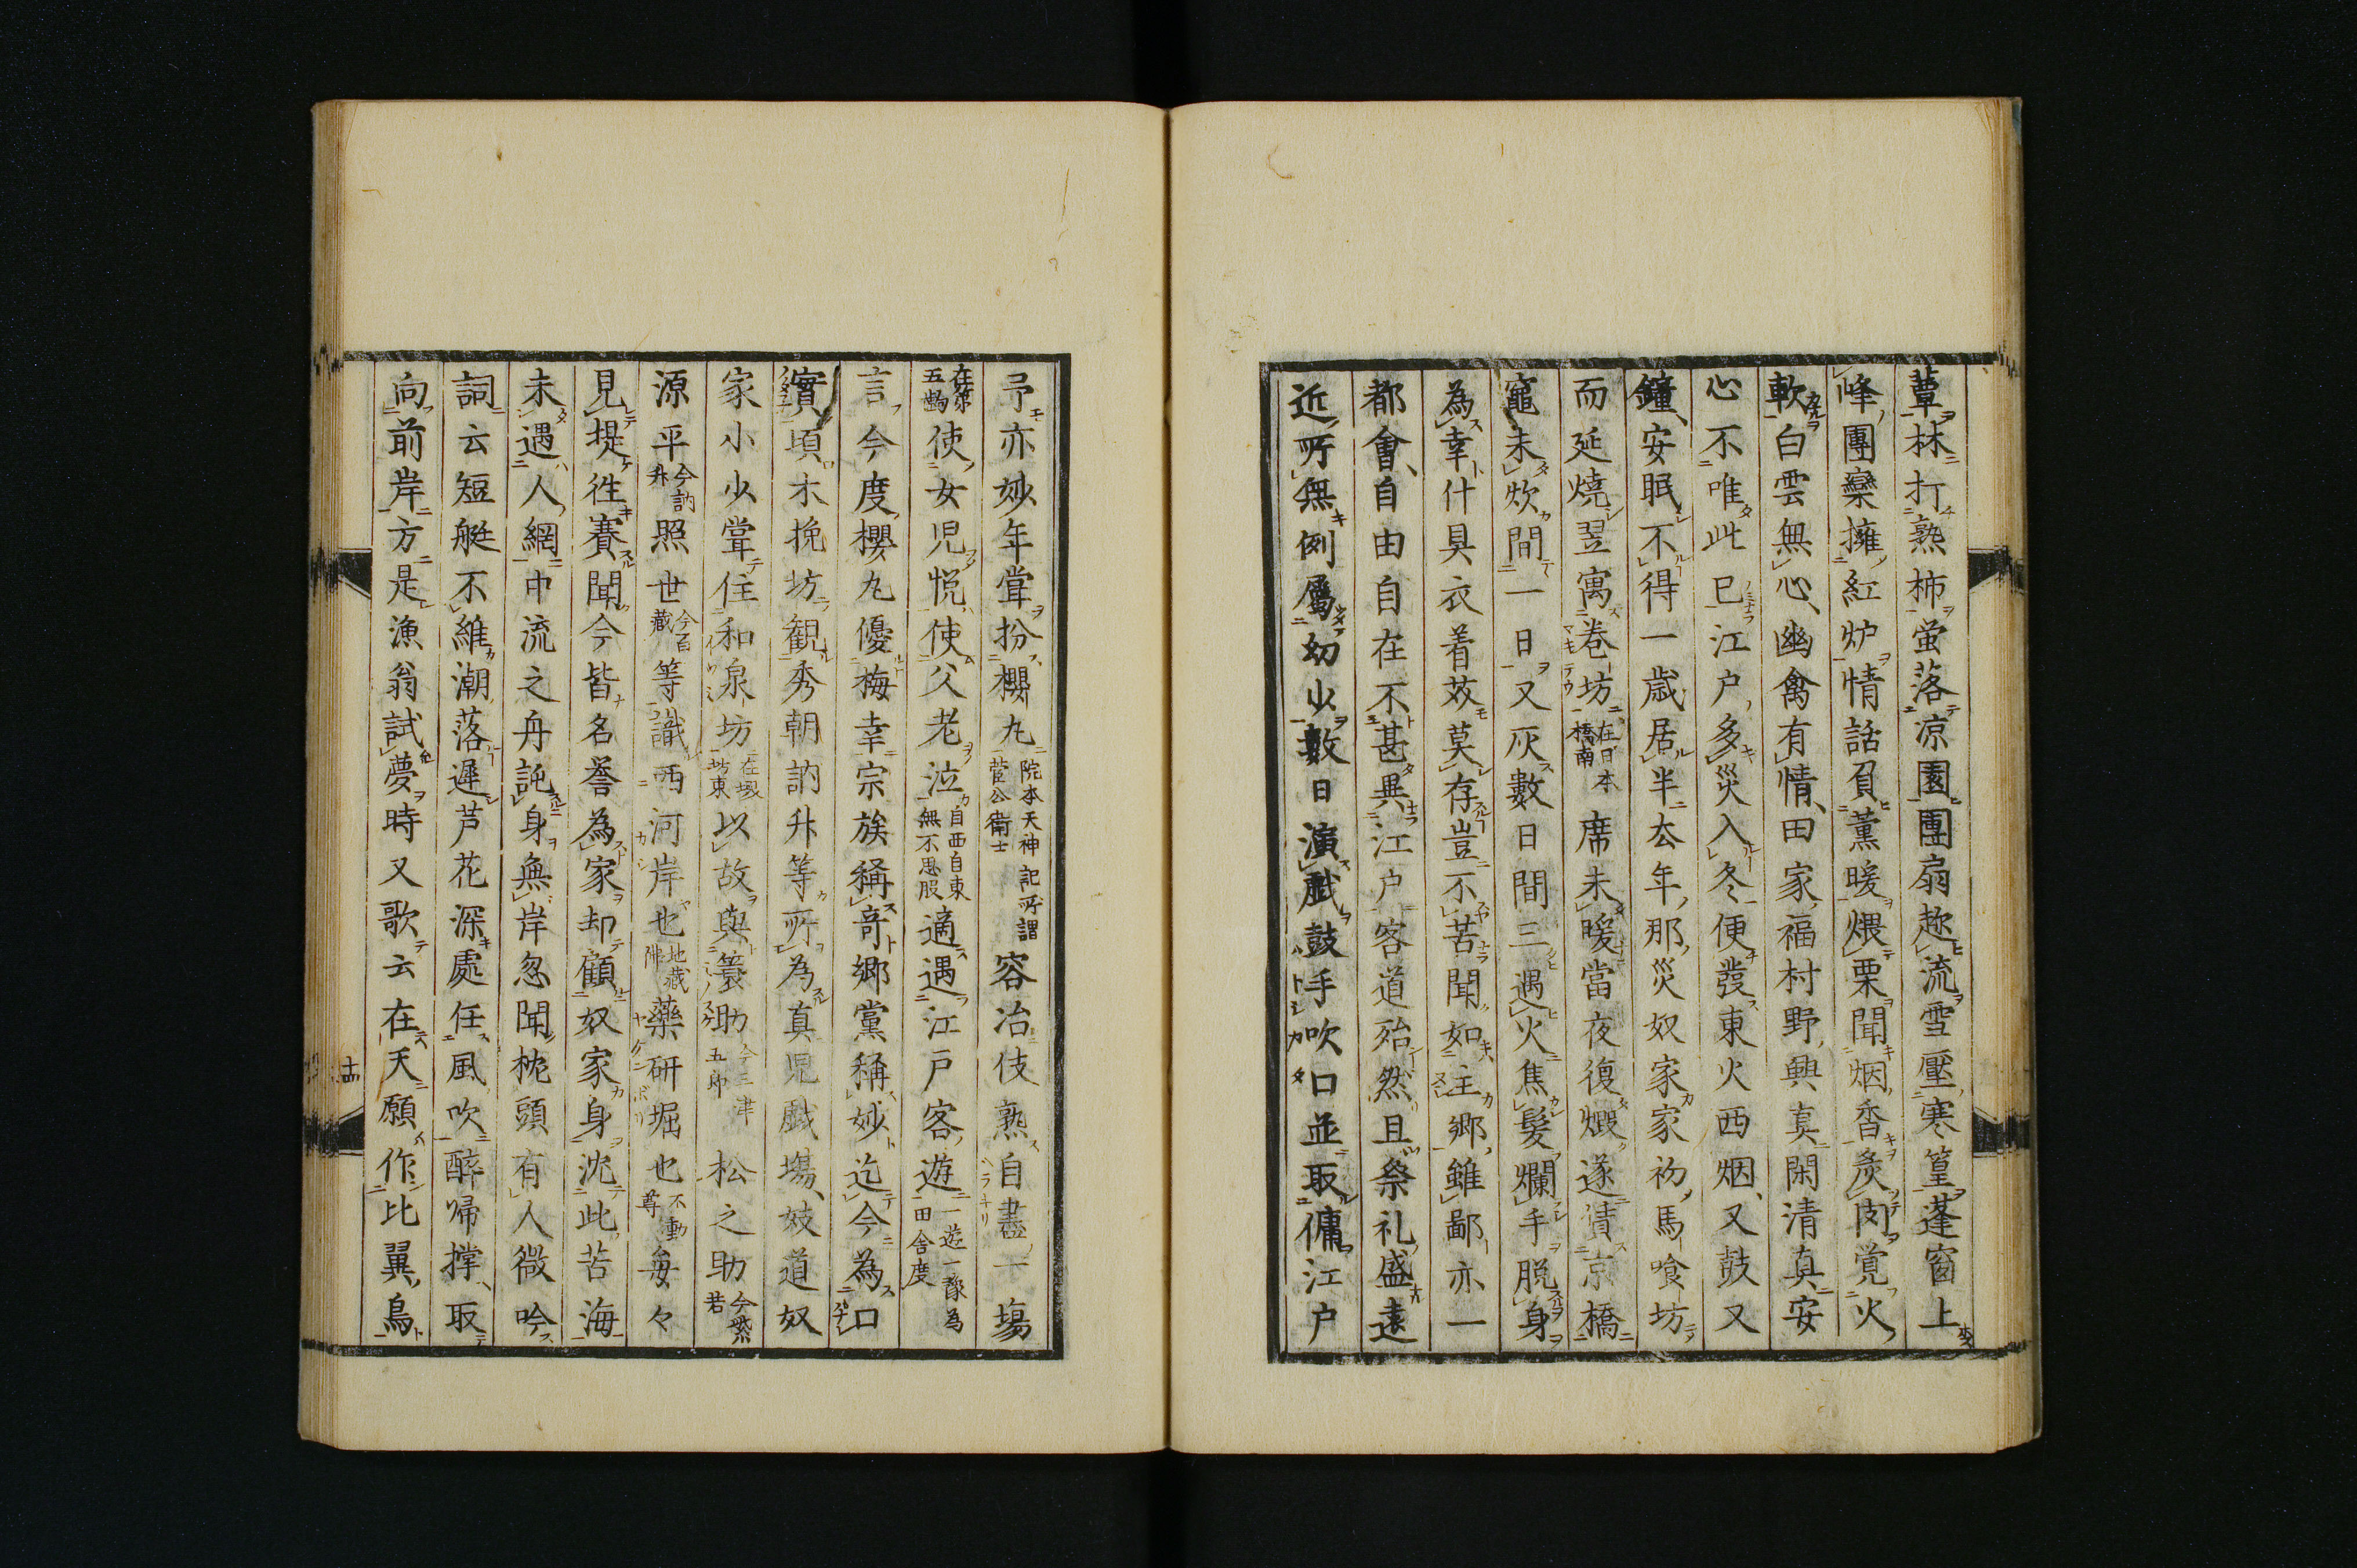 蕈林打熟柿蛍落涼園團扇趂流雪壓寒篁蓬窗上
峰團欒擁紅炉情話負薫暖煨栗聞烟香炙肉覚火
軟白雲無心幽禽有情田家福村野興真閑清真安
心不唯此已江戸多災入冬便發東火西烟又鼓又
鐘安眠不得一歳居半去年那災奴家家初馬喰坊
而延燒翌寓巻坊在日本橋南席未暖當夜復燬遂僦京橋
竈未炊間一日又灰數日間三遇火焦髮爛手脱身
為幸什具衣着莫存豈不苦聞如主郷雖鄙亦一
都會自由自在不甚異江戸客道殆然且祭礼盛遠
近所無例屬幼少數日演戯鼓手吹口並取傭江戸
予亦妙年甞扮櫻丸院本天神記所謂菅公衛士容冶伎熟自盡一場
在第五齣使女児悦使父老泣自西自東無不思服適遇江戸客遊一遊一豫為田舎度
言今度櫻丸優梅幸宗族稱奇郷黨稱妙迄今為口
實頃木挽坊観秀朝訥升等所為真児戯塲妓道奴
家小少甞住和泉坊在堺坊東以故與簑助今三津五郎松之助今紫若
源平今訥升照世今百蔵等識西河岸也地蔵佛薬研堀也不動尊毎々
見提徃賽聞今皆名誉為家却顧奴家身沈此苦海
未遇人綱中流之舟託身無岸忽聞枕頭有人微吟
詞云短艇不維潮落遲芦花深處任風吹醉帰撑取
向前岸方是漁翁試夢時又歌云在天願作比翼鳥